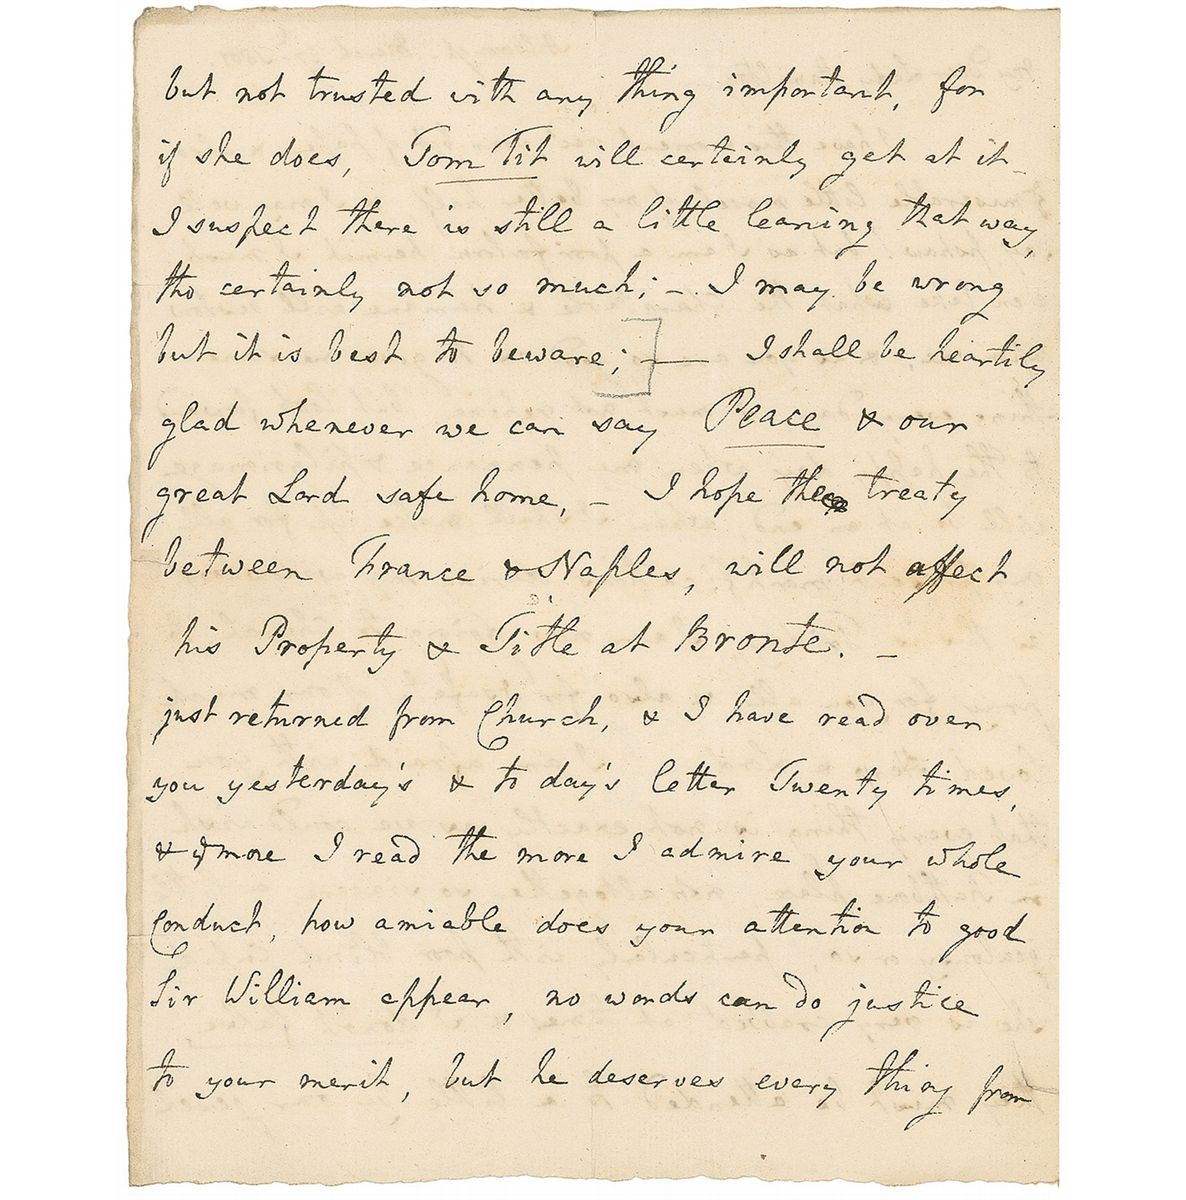 but not trusted with any thing important, for
if she does, Tom Tit will certainly get at it –
I suspect there is still a little leaning that way,
tho certainly not so much; – I may be wrong
but it is best to beware; ] — I shall be heartily
glad whenever we can say Peace & our
great Lord safe home, – I hope the treaty
between France & Naples, will not affect
his Property & Title at Bronte. –
just returned from Church, & I have read over
you yesterday's & to day's letter Twenty times,
& ye more I read the more I admire your whole
Conduct, how amiable does your attention to good
Sir William appear, no words can do justice
to your merit, but he deserves every thing from